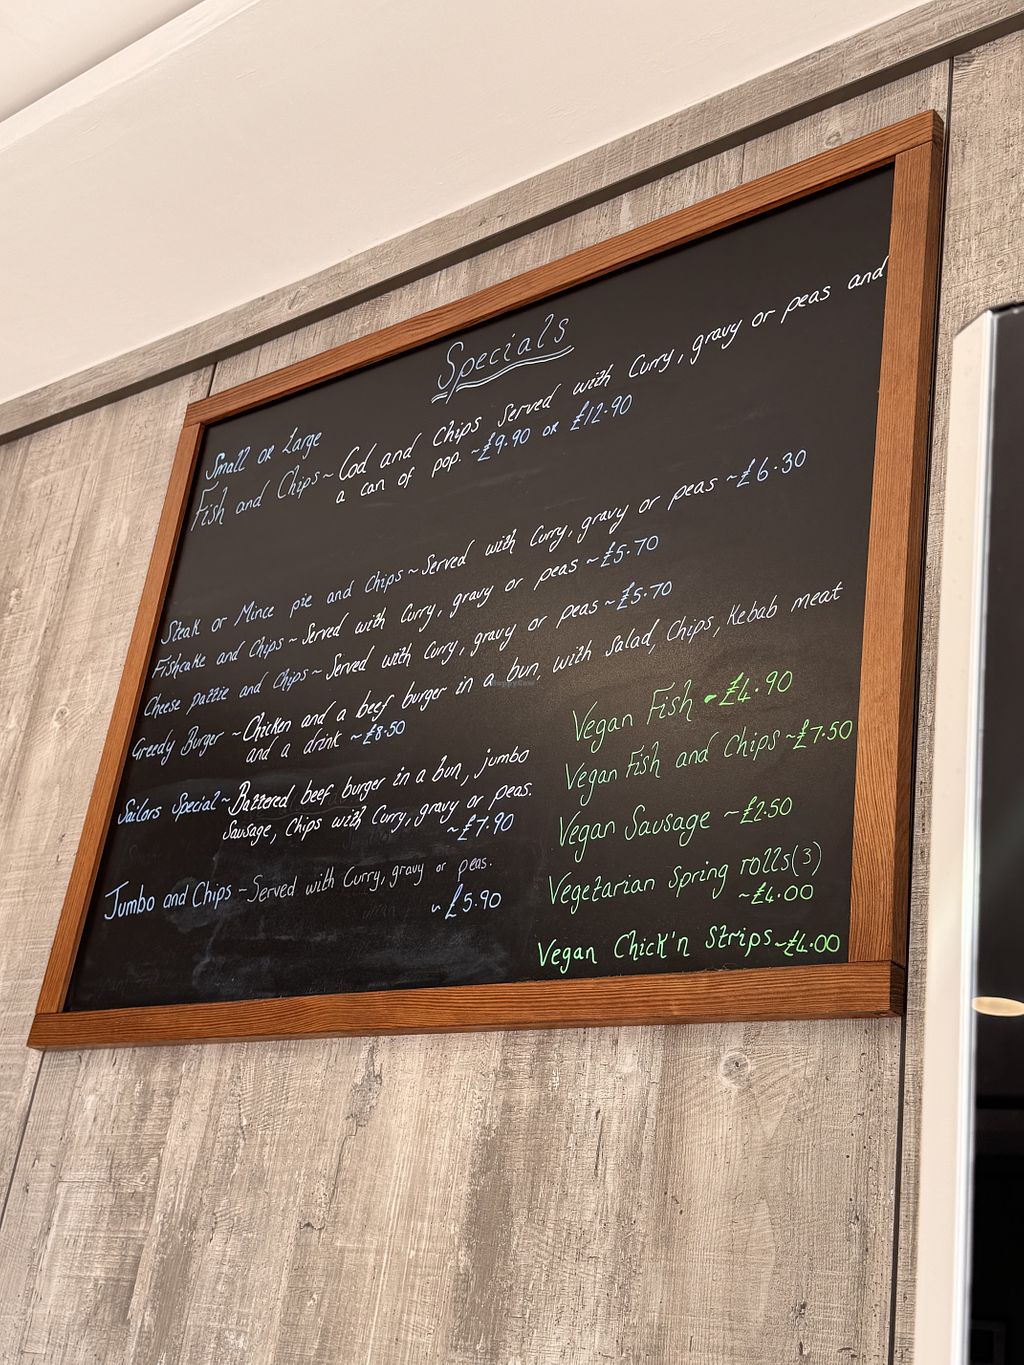 Specials
Small or Large
Fish and Chips ~ Cod and Chips Served with Curry, gravy or peas and
a can of pop. ~£9.90 or £12.90
Steak or Mince pie and Chips ~ Served with Curry, gravy or peas ~£6.30
Fishcake and Chips ~ Served with Curry, gravy or peas ~£5.70
Cheese pattie and Chips ~ Served with Curry, gravy or peas ~£5.70
Greedy Burger ~ Chicken and a beef burger in a bun, with salad, Chips, Kebab meat
and a drink ~£8.50
Sailors Special ~ Battered beef burger in a bun, jumbo
Sausage, Chips with Curry, gravy or peas.
~£7.90
Jumbo and Chips ~ Served with Curry, gravy or peas.
~£5.90
Vegan Fish ~£4.90
Vegan Fish and Chips ~£7.50
Vegan Sausage ~£2.50
Vegetarian Spring rolls(3)
~£4.00
Vegan Chick'n Strips ~£4.00